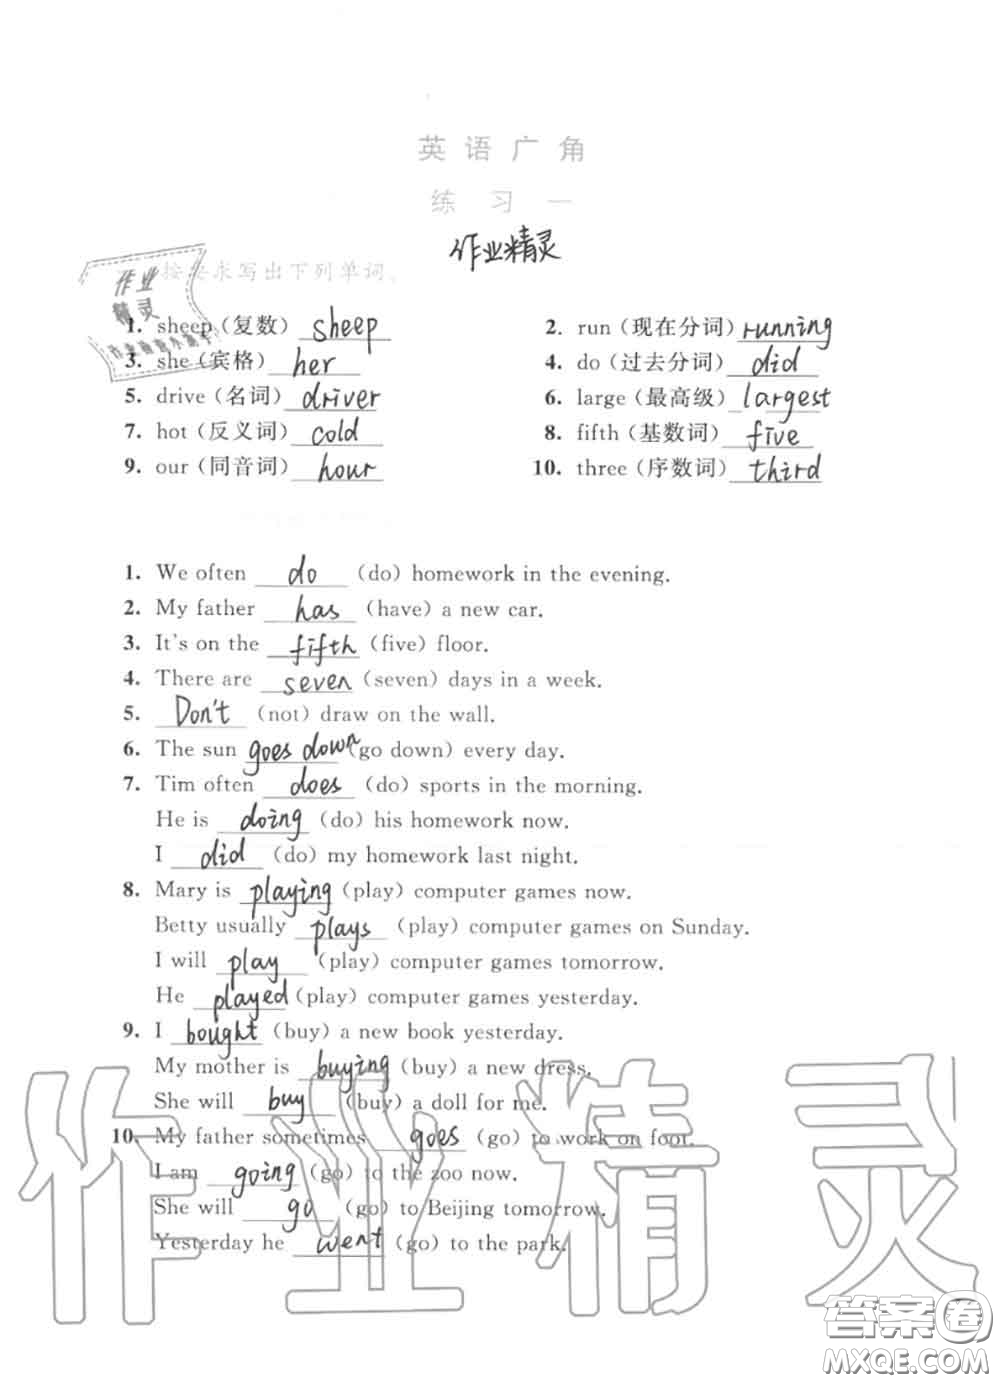 英语广角
练习一
作业精灵
按要求写出下列单词。
作业
精灵
1. sheep（复数） sheep
2. run（现在分词） running
3. she（宾格） her
4. do（过去分词） did
5. drive（名词） driver
6. large（最高级） largest
7. hot（反义词） cold
8. fifth（基数词） five
9. our（同音词） hour
10. three（序数词） third
1. We often do (do) homework in the evening.
2. My father has (have) a new car.
3. It's on the fifth (five) floor.
4. There are seven (seven) days in a week.
5. Don't (not) draw on the wall.
6. The sun goes down (go down) every day.
7. Tim often does (do) sports in the morning.
He is doing (do) his homework now.
I did (do) my homework last night.
8. Mary is playing (play) computer games now.
Betty usually plays (play) computer games on Sunday.
I will play (play) computer games tomorrow.
He played (play) computer games yesterday.
9. I bought (buy) a new book yesterday.
My mother is buying (buy) a new dress.
She will buy (buy) a doll for me.
10. My father sometimes goes (go) to work on foot.
I am going (go) to the zoo now.
She will go (go) to Beijing tomorrow.
Yesterday he went (go) to the park.
作业精灵
答案圈
MXQE.COM